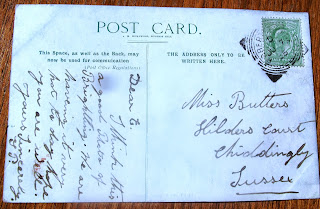 POST CARD.
This Space, as well as the Back, may
now be used for communication
(Post Office Regulations)
THE ADDRESS ONLY TO BE
WRITTEN HERE.
Dear E.
I think this
a good view of
Brightling. We are
having it very
hot to day hope
you are
Yours sincerely
Miss Butters
Hilders Court
Chiddingly
Sussex